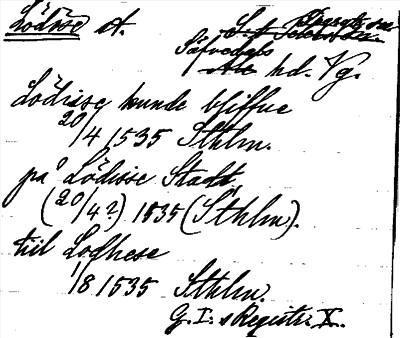 Lödöse St.
Säfvedals
Ale hd. Vg.
Lödisse kunde bliffue
20/4 1535 Sthlm.
på Lödisse Stadt
(20/4?) 1535 (Sthlm).
till Lofhese
1/8 1535 Sthlm.
G. I:s Registr. X.